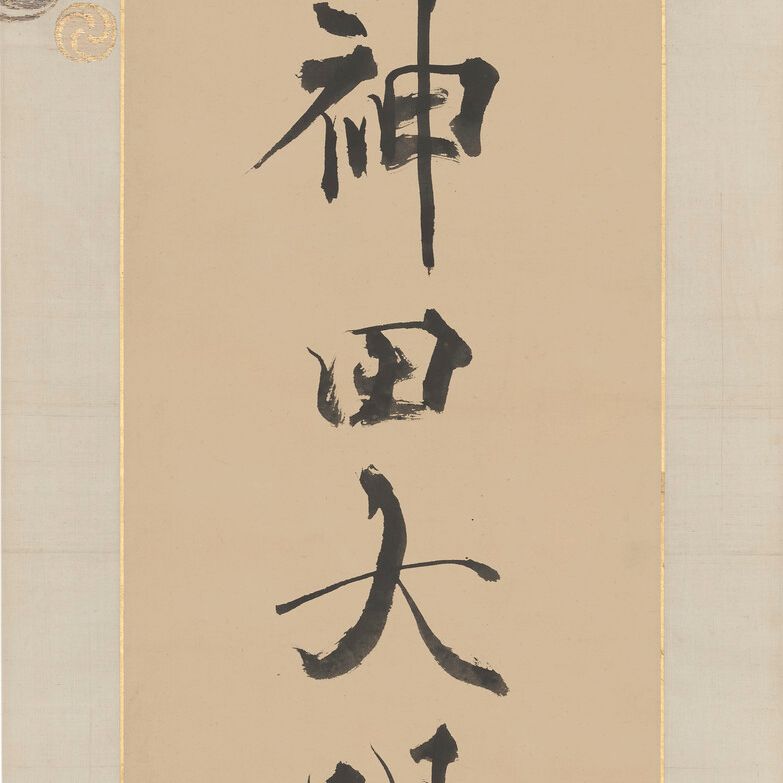 神田大